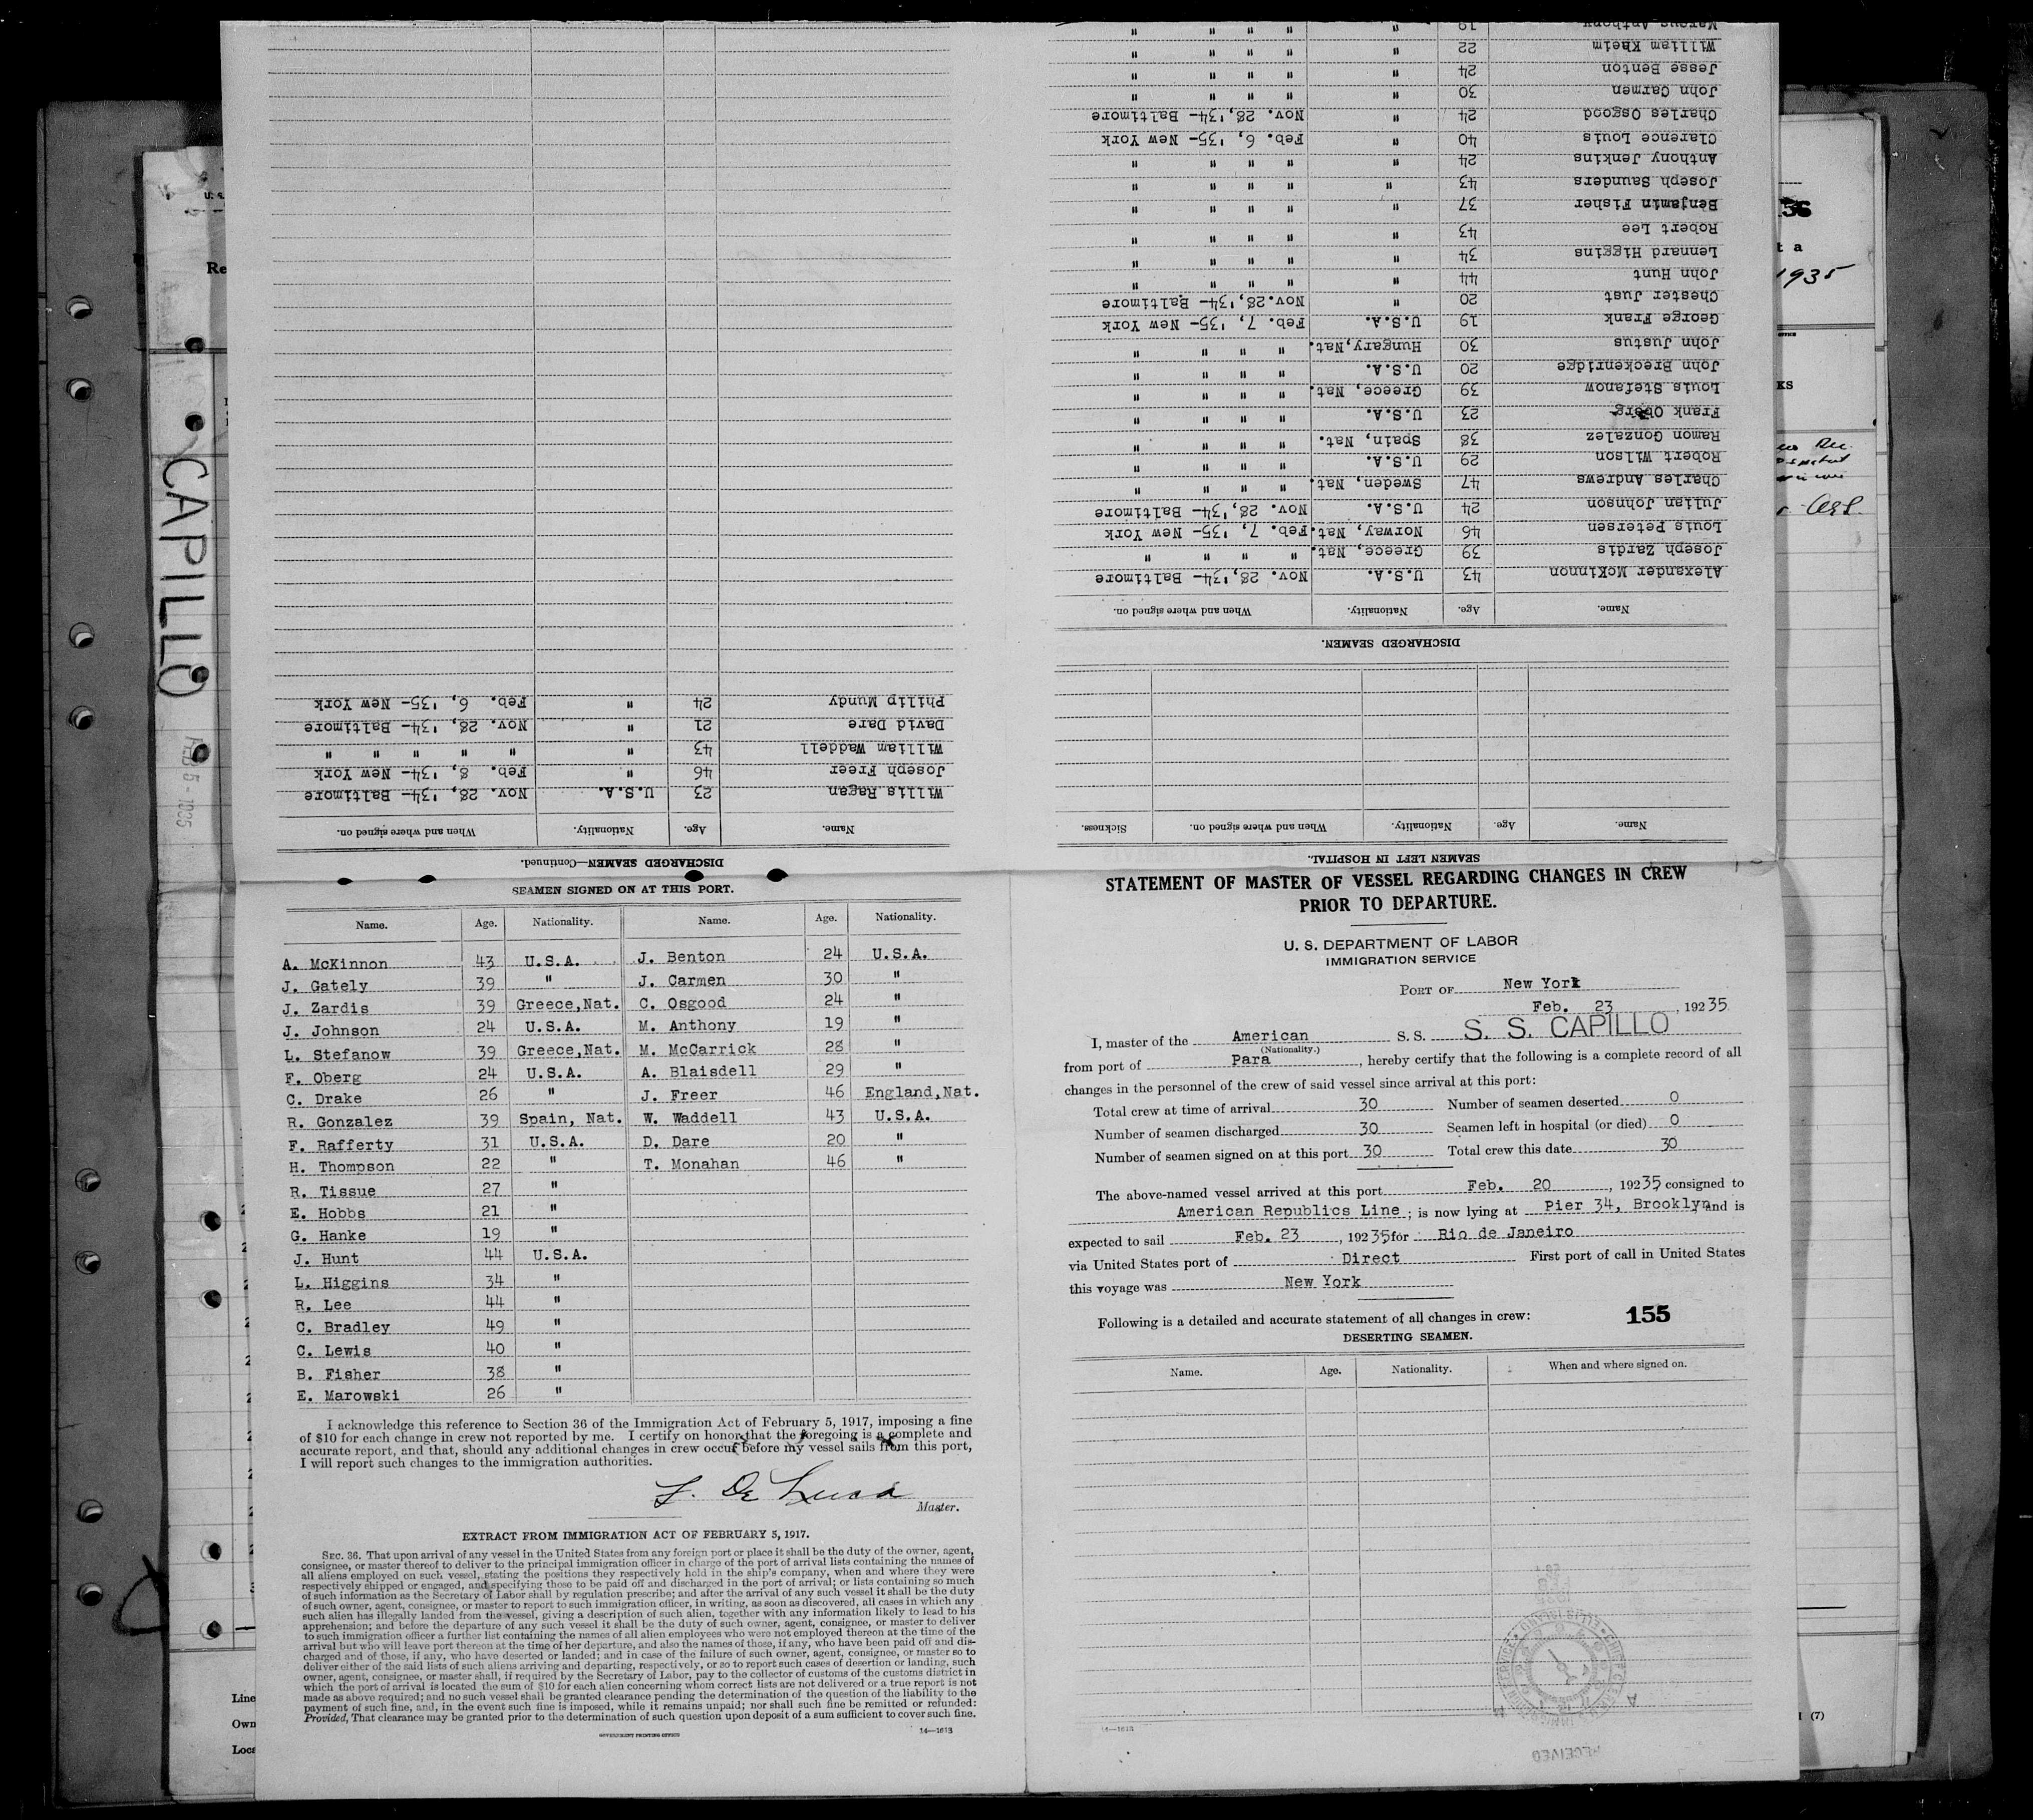 STATEMENT OF MASTER OF VESSEL REGARDING CHANGES IN CREW
PRIOR TO DEPARTURE.
U. S. DEPARTMENT OF LABOR
IMMIGRATION SERVICE
PORT OF New York
Feb. 23, 1935
I, master of the American S. S. S. S. CAPILLO
(Nationality.)
from port of Para, hereby certify that the following is a complete record of all
changes in the personnel of the crew of said vessel since arrival at this port:
Total crew at time of arrival 30 Number of seamen deserted 0
Number of seamen discharged 30 Seamen left in hospital (or died) 0
Number of seamen signed on at this port 30 Total crew this date 30
The above-named vessel arrived at this port Feb. 20, 1935 consigned to
American Republics Line; is now lying at Pier 34, Brooklyn and is
expected to sail Feb. 23, 1935 for Rio de Janeiro
via United States port of Direct First port of call in United States
this voyage was New York
Following is a detailed and accurate statement of all changes in crew: 155
DESERTING SEAMEN.
Name. Age. Nationality. When and where signed on.
14—1613
RECEIVED
SEAMEN LEFT IN HOSPITAL.
Name. Age. Nationality. When and where signed on. Sickness.
DISCHARGED SEAMEN.
Name. Age. Nationality. When and where signed on.
Alexander McKinnon 43 U.S.A. Nov. 28,'34- Baltimore
Joseph Zardis 39 Greece, Nat. " " " " "
Louis Petersen 46 Norway, Nat. Feb. 7, '35- New York
Julian Johnson 24 U.S.A. Nov. 28,'34- Baltimore
Charles Andrews 47 Sweden, Nat. " " " "
Robert Wilson 29 U.S.A. " " " "
Ramon Gonzalez 38 Spain, Nat. " " " "
Frank Oberg 23 U.S.A. " " " "
Louis Stefanow 39 Greece, Nat. " " " "
John Breckenridge 20 U.S.A. " " " "
John Justus 30 Hungary,Nat. " " " "
George Frank 19 U.S.A. Feb. 7, '35- New York
Chester Just 20 " Nov.28,'34- Baltimore
John Hunt 44 " " " " "
Lennard Higgins 34 " " " " "
Robert Lee 43 " " " " "
Benjamin Fisher 37 " " " " "
Joseph Saunders 43 " " " " "
Anthony Jenkins 24 " " " " "
Clarence Louis 40 " Feb. 6, '35- New York
Charles Osgood 24 " Nov. 28,'34- Baltimore
John Carmen 30 " " " " "
Jesse Benton 24 " " " " "
William Kheim 22 " " " " "
Marcus Anthony 19 " " " " "
DISCHARGED SEAMEN—Continued.
Name. Age. Nationality. When and where signed on.
Willis Ragan 23 U.S.A. Nov. 28, '34- Baltimore
Joseph Freer 46 " Feb. 8, '34- New York
William Waddell 43 " " " " " "
David Dare 21 " Nov. 28, '34- Baltimore
Philip Mundy 24 " Feb. 6, '35- New York
SEAMEN SIGNED ON AT THIS PORT.
Name. Age. Nationality. Name. Age. Nationality.
A. McKinnon 43 U.S.A. J. Benton 24 U.S.A.
J. Gately 39 " J. Carmen 30 "
J. Zardis 39 Greece,Nat. C. Osgood 24 "
J. Johnson 24 U.S.A. M. Anthony 19 "
L. Stefanow 39 Greece,Nat. M. McCarrick 28 "
F. Oberg 24 U.S.A. A. Blaisdell 29 "
C. Drake 26 " J. Freer 46 England,Nat.
R. Gonzalez 39 Spain, Nat. W. Waddell 43 U.S.A.
F. Rafferty 31 U.S.A. D. Dare 20 "
H. Thompson 22 " T. Monahan 46 "
R. Tissue 27 "
E. Hobbs 21 "
G. Hanke 19 "
J. Hunt 44 U.S.A.
L. Higgins 34 "
R. Lee 44 "
C. Bradley 49 "
C. Lewis 40 "
B. Fisher 38 "
E. Marowski 26 "
I acknowledge this reference to Section 36 of the Immigration Act of February 5, 1917, imposing a fine
of $10 for each change in crew not reported by me. I certify on honor that the foregoing is a complete and
accurate report, and that, should any additional changes in crew occur before my vessel sails from this port,
I will report such changes to the immigration authorities.
F. De Luca
Master.
EXTRACT FROM IMMIGRATION ACT OF FEBRUARY 5, 1917.
SEC. 36. That upon arrival of any vessel in the United States from any foreign port or place it shall be the duty of the owner, agent,
consignee, or master thereof to deliver to the principal immigration officer in charge of the port of arrival lists containing the names of
all aliens employed on such vessel, stating the positions they respectively hold in the ship's company, when and where they were
respectively shipped or engaged, and specifying those to be paid off and discharged in the port of arrival; or lists containing so much
of such information as the Secretary of Labor shall by regulation prescribe; and after the arrival of any such vessel it shall be the duty
of such owner, agent, consignee, or master to report to such immigration officer, in writing, as soon as discovered, all cases in which any
such alien has illegally landed from the vessel, giving a description of such alien, together with any information likely to lead to his
apprehension; and before the departure of any such vessel it shall be the duty of such owner, agent, consignee, or master to deliver
to such immigration officer a further list containing the names of all alien employees who were not employed thereon at the time of the
arrival but who will leave port thereon at the time of her departure, and also the names of those, if any, who have been paid off and dis-
charged and of those, if any, who have deserted or landed; and in case of the failure of such owner, agent, consignee, or master so to
deliver either of the said lists of such aliens arriving and departing, respectively, or so to report such cases of desertion or landing, such
owner, agent, consignee, or master shall, if required by the Secretary of Labor, pay to the collector of customs of the customs district in
which the port of arrival is located the sum of $10 for each alien concerning whom correct lists are not delivered or a true report is not
made as above required; and no such vessel shall be granted clearance pending the determination of the question of the liability to the
payment of such fine, and, in the event such fine is imposed, while it remains unpaid; nor shall such fine be remitted or refunded:
Provided, That clearance may be granted prior to the determination of such question upon deposit of a sum sufficient to cover such fine.
GOVERNMENT PRINTING OFFICE 14—1613
CAPILLO
FEB 5 - 1935
U. S.
Re
Line
Own
Loca
1935
(7)